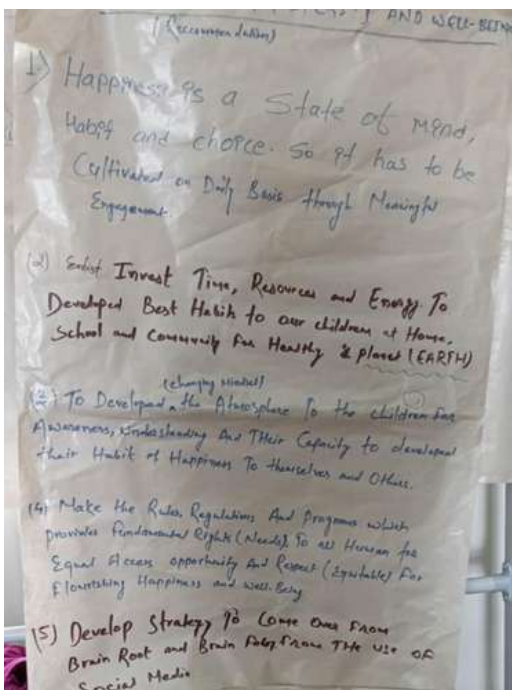 AND WELL-BEING
(Reccommendation)
1) Happiness is a State of Mind,
Habit and choice. So it has to be
Cultivated on Daily Basis through Meaningful
Engagement.
(2) Invest Time, Resources and Energy To
Developed Best Habits to our children at Home,
School and Community for Healthy & planet (EARTH)
(changing mindset)
(3) To Developed the Atmosphere To the children for
Awareness, Understanding And THeir Capacity to developed
their Habit of Happiness To themselves and Others.
(4) Make the Rules, Regulations And Programs which
provides fundamental Rights (Needs) To all Human for
Equal Access opportunity And Respect (Equitable) For
Flourishing Happiness and well-Being
(5) Develop Strategy To Come Over From
Brain Root and Brain From THe use of
Social Media